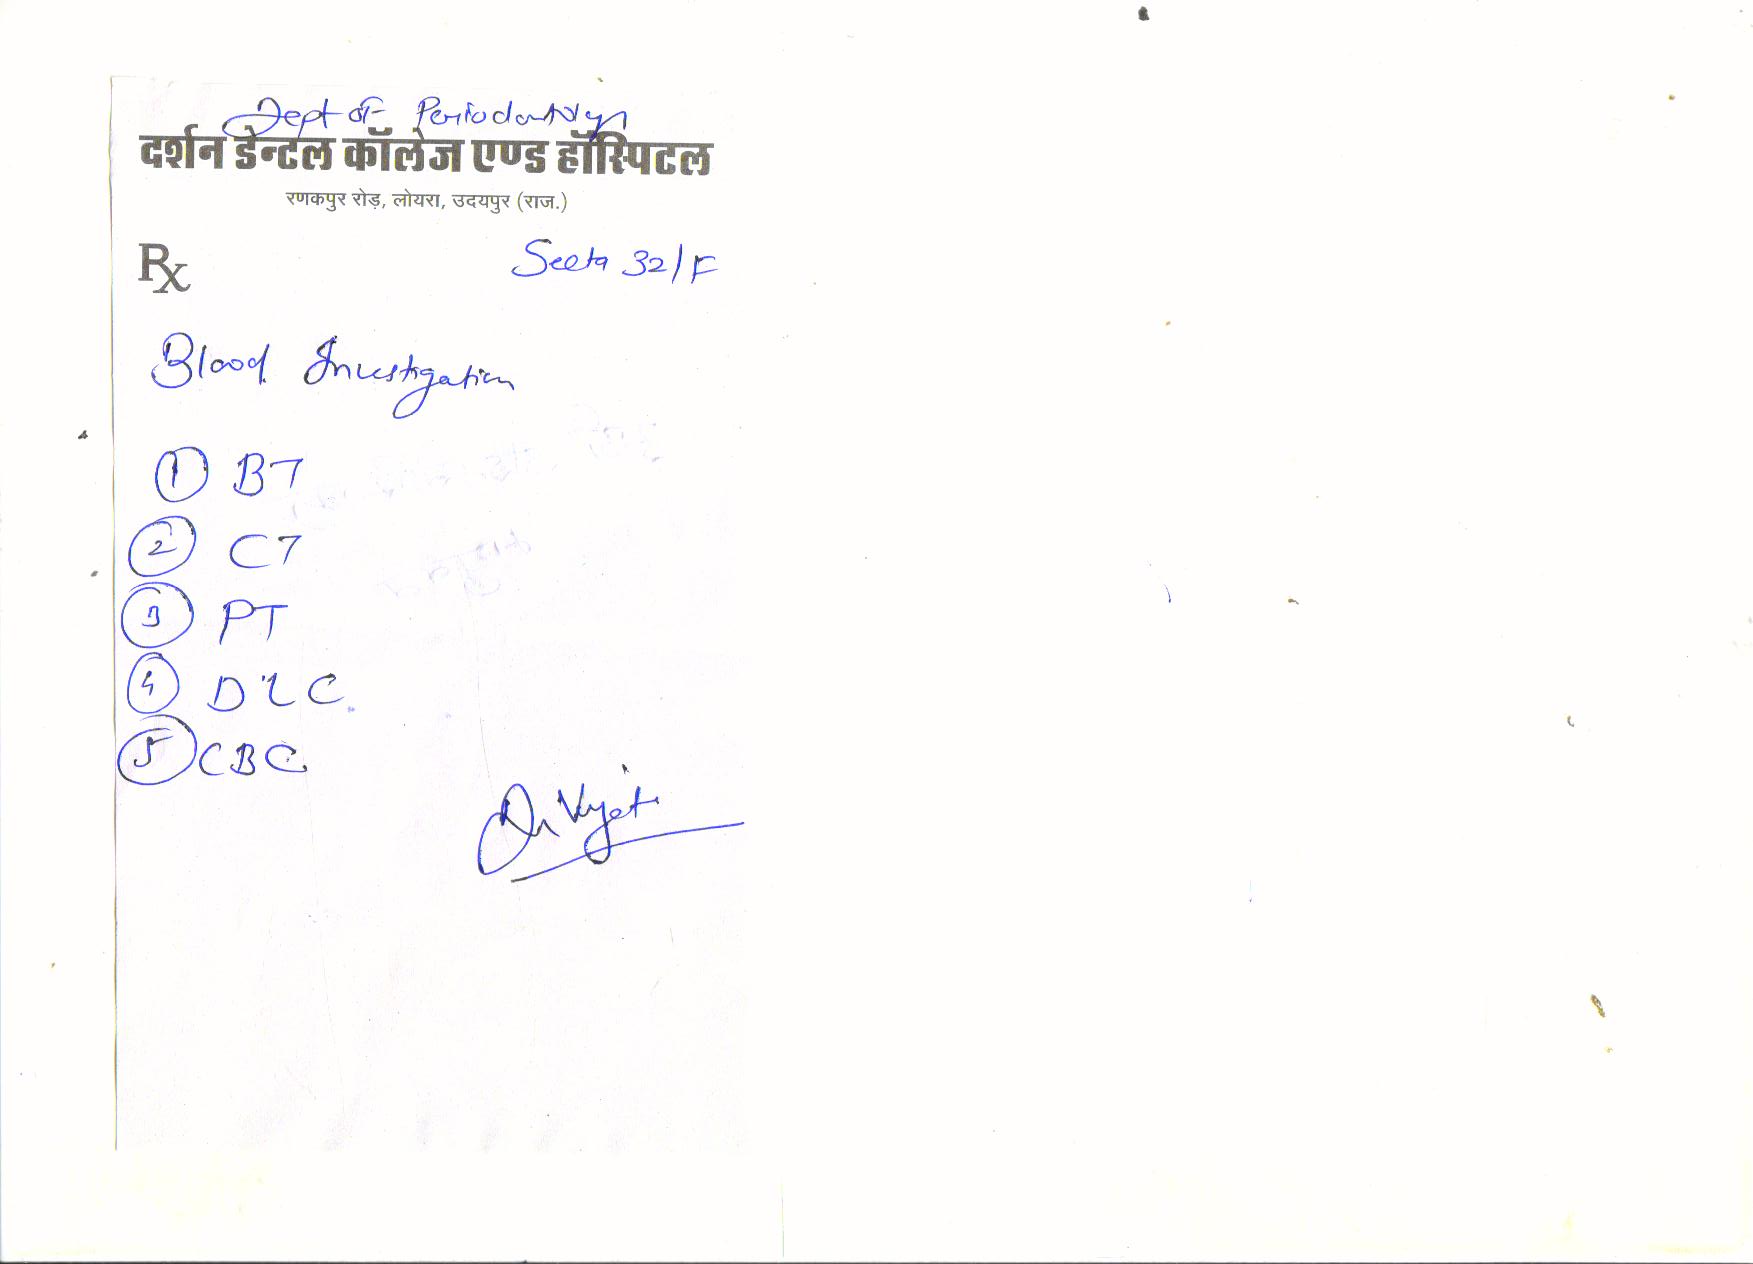 Dept of Periodontology
दर्शन डेन्टल कॉलेज एण्ड हॉस्पिटल
रणकपुर रोड़, लोयरा, उदयपुर (राज.)
Rx Seeta 32/F
Blood Investigation
1 BT
2 CT
3 PT
4 DLC
5 CBC
Dr